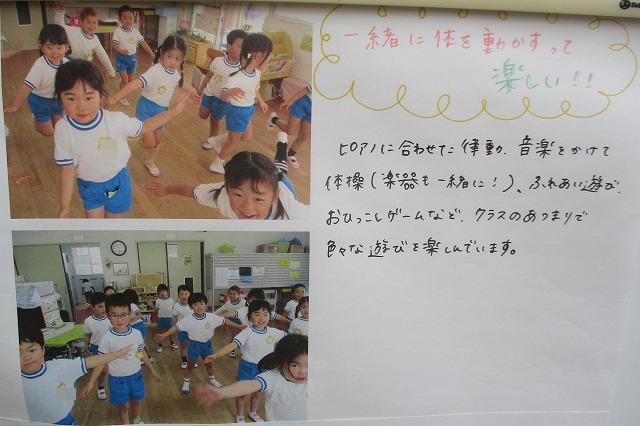 一緒に体を動かすって
楽しい!!
ピアノに合わせた律動、音楽をかけて
体操(楽器も一緒に!)、ふれあい遊び、
おひっこしゲームなど、クラスのあつまりで
色々な遊びを楽しんでいます。